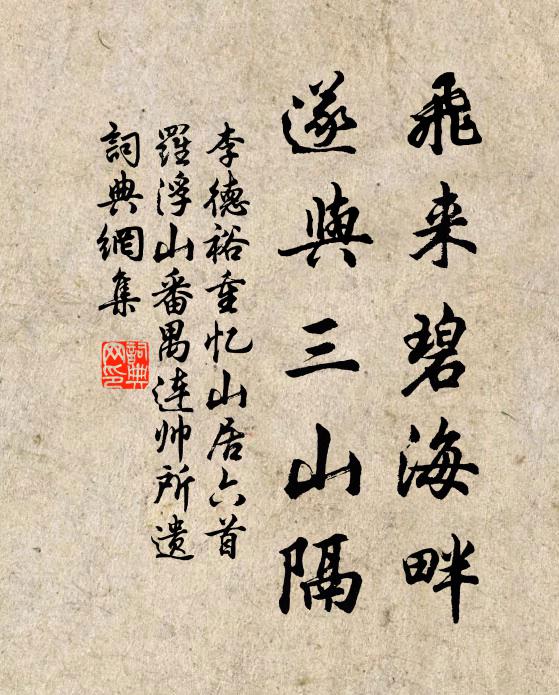 飛来碧海畔
遂與三山隔
李德裕重忆山居六首
羅浮山番禺连帅所遗
詞典網集
詞典网印